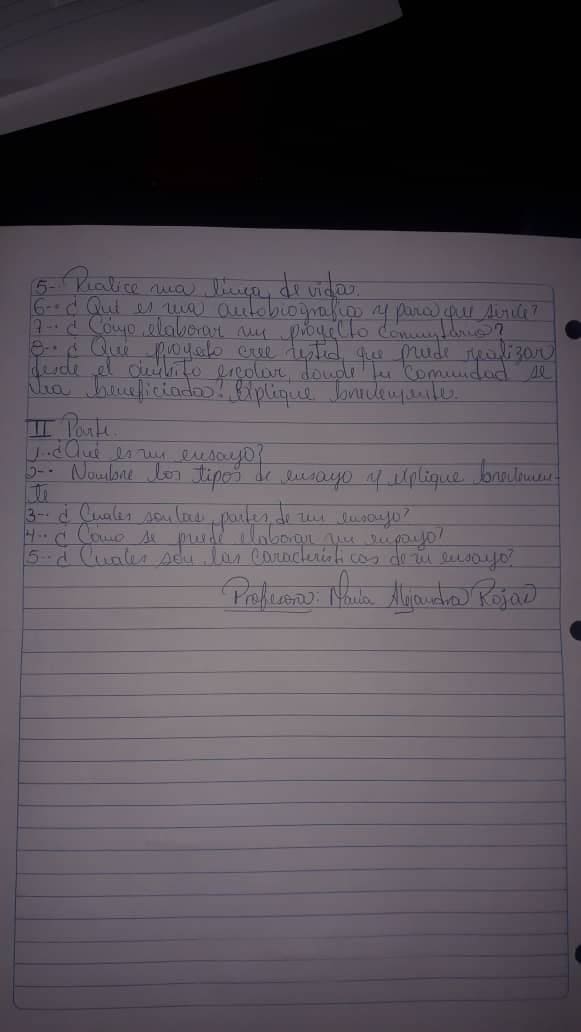 5-- Realice una línea de vida.
6-- ¿Qué es una autobiografía y para que sirve?
7-- ¿Cómo elaborar un proyecto comunitario?
8-- ¿Que proyecto cree usted que puede realizar
desde el ámbito escolar, donde tu comunidad se
vea beneficiada? Explique brevemente.
II Parte.
1--¿Qué es un ensayo?
2-- Nombre los tipos de ensayo y explique brevemen-
te
3-- ¿Cuales son las partes de un ensayo?
4-- ¿Cómo se puede elaborar un ensayo?
5--¿Cuales son las características de un ensayo?
Profesora: María Alejandra Rojas